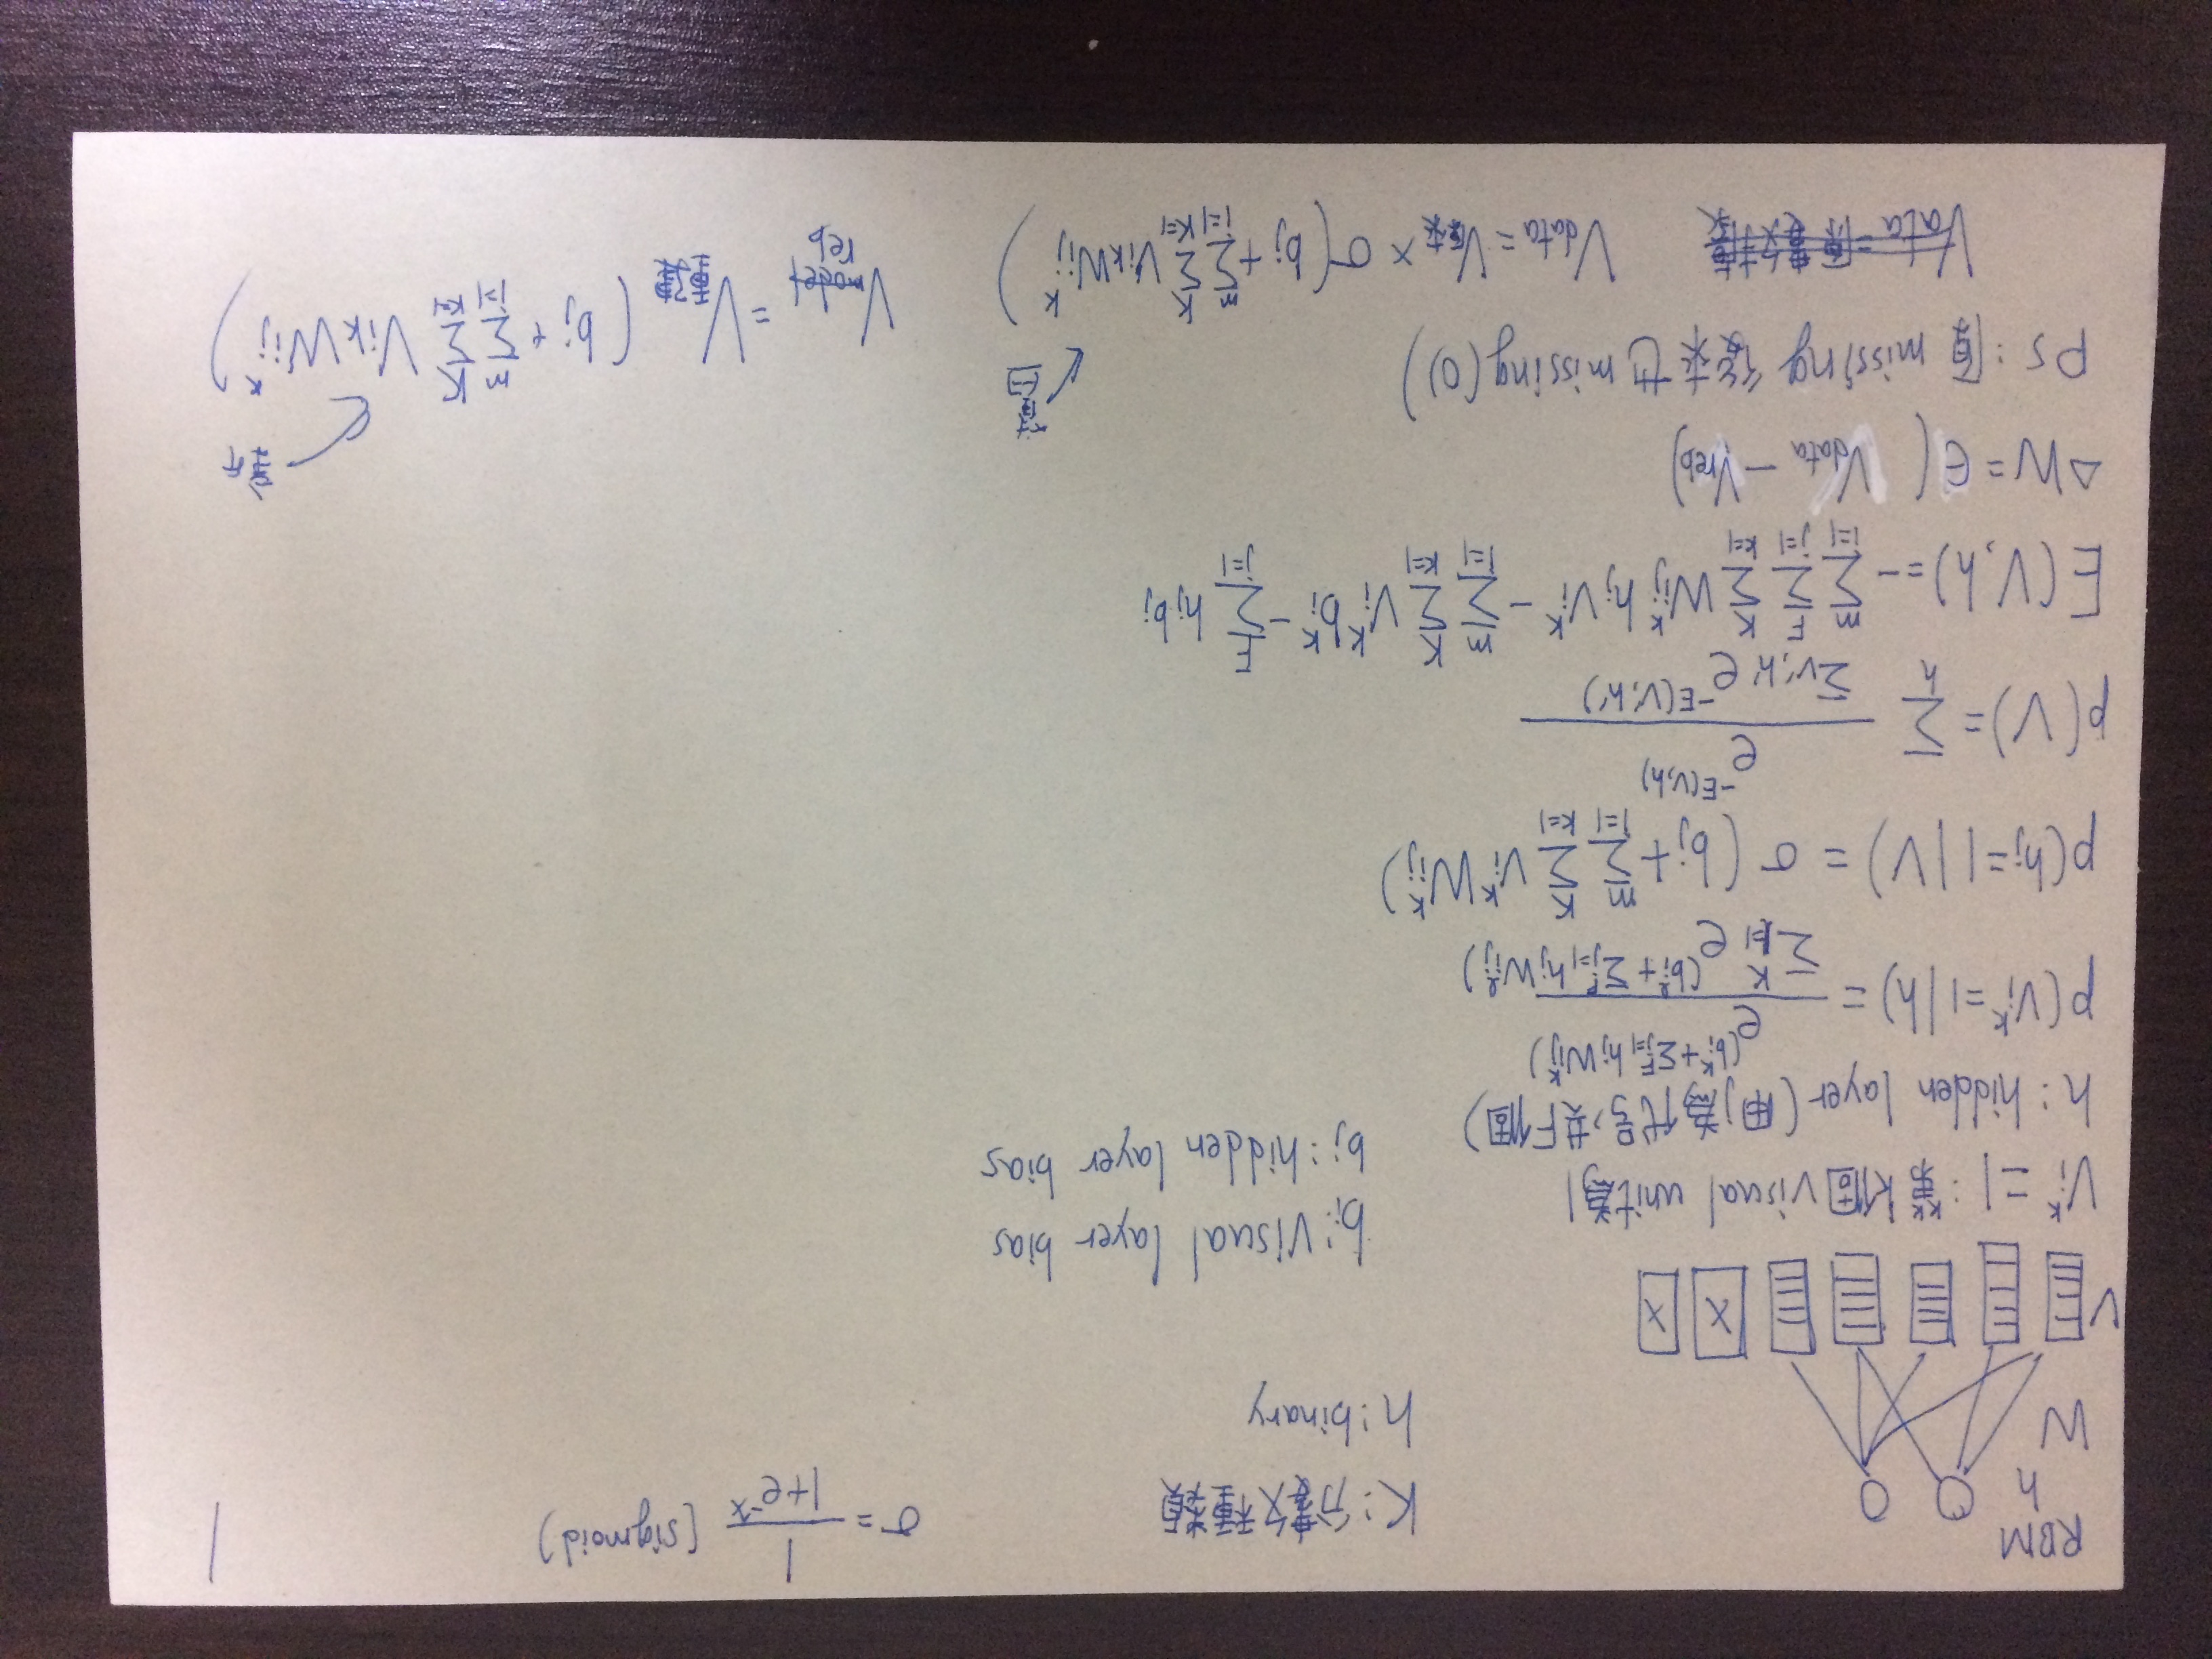 RBM
h
W
V X X
K:分數種類
h:binary
σ = 1/(1+e^-x) (sigmoid)
1
b_i:visual layer bias
b_j:hidden layer bias
V_i^k =1:第k個visual unit為1
h: hidden layer(用j為代号,共F個)
p(V_i^k=1|h) = e^(b_i^k+Σ_{j=1}^F h_j W_ij^k) / Σ_{l=1}^K e^(b_i^l+Σ_{j=1}^F h_j W_ij^l)
p(h_j=1|V) = σ(b_j+Σ_{i=1}^m Σ_{k=1}^K V_i^k W_ij^k)
p(V)=Σ_h e^-E(V,h) / Σ_{V',h'} e^-E(V',h')
E(V,h)=-Σ_{i=1}^m Σ_{j=1}^F Σ_{k=1}^K W_ij^k h_j V_i^k - Σ_{i=1}^m Σ_{k=1}^K V_i^k b_i^k - Σ_{j=1}^F h_j b_j
ΔW=ϵ( V_data - V_reb)
PS:原missing後來也missing(0)
舊
V_data=V_原來 × σ(b_j+Σ_{i=1}^m Σ_{K=1}^K V_ik W_ij^k)
新
V_reb = V_重建 (b_j + Σ_{i=1}^m Σ_{K=1}^K V_ik W_ij^k)